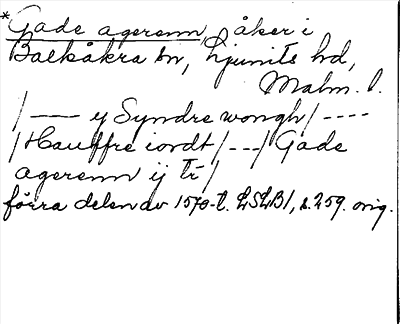 *Gade agerenn, åker i
Balkåkra sn, Ljunits hd,
Malm. l.
/—— y Syndre wongh/----
/Hauffre iordt/---/Gade
agerenn ij tr/
förra delen av 1570-t. LSLB1, s. 259. orig.